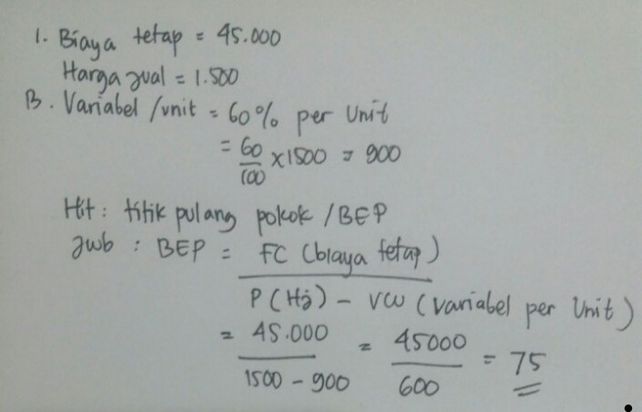 1. Biaya tetap = 45.000
Harga jual = 1.500
B. Variabel /unit = 60% per Unit
= 60/100 x 1500 = 900
Hit : titik pulang pokok / BEP
Jwb : BEP = FC (biaya tetap)
P (Hj) - VW (variabel per Unit)
= 45.000 / 1500 - 900 = 45000 / 600 = 75